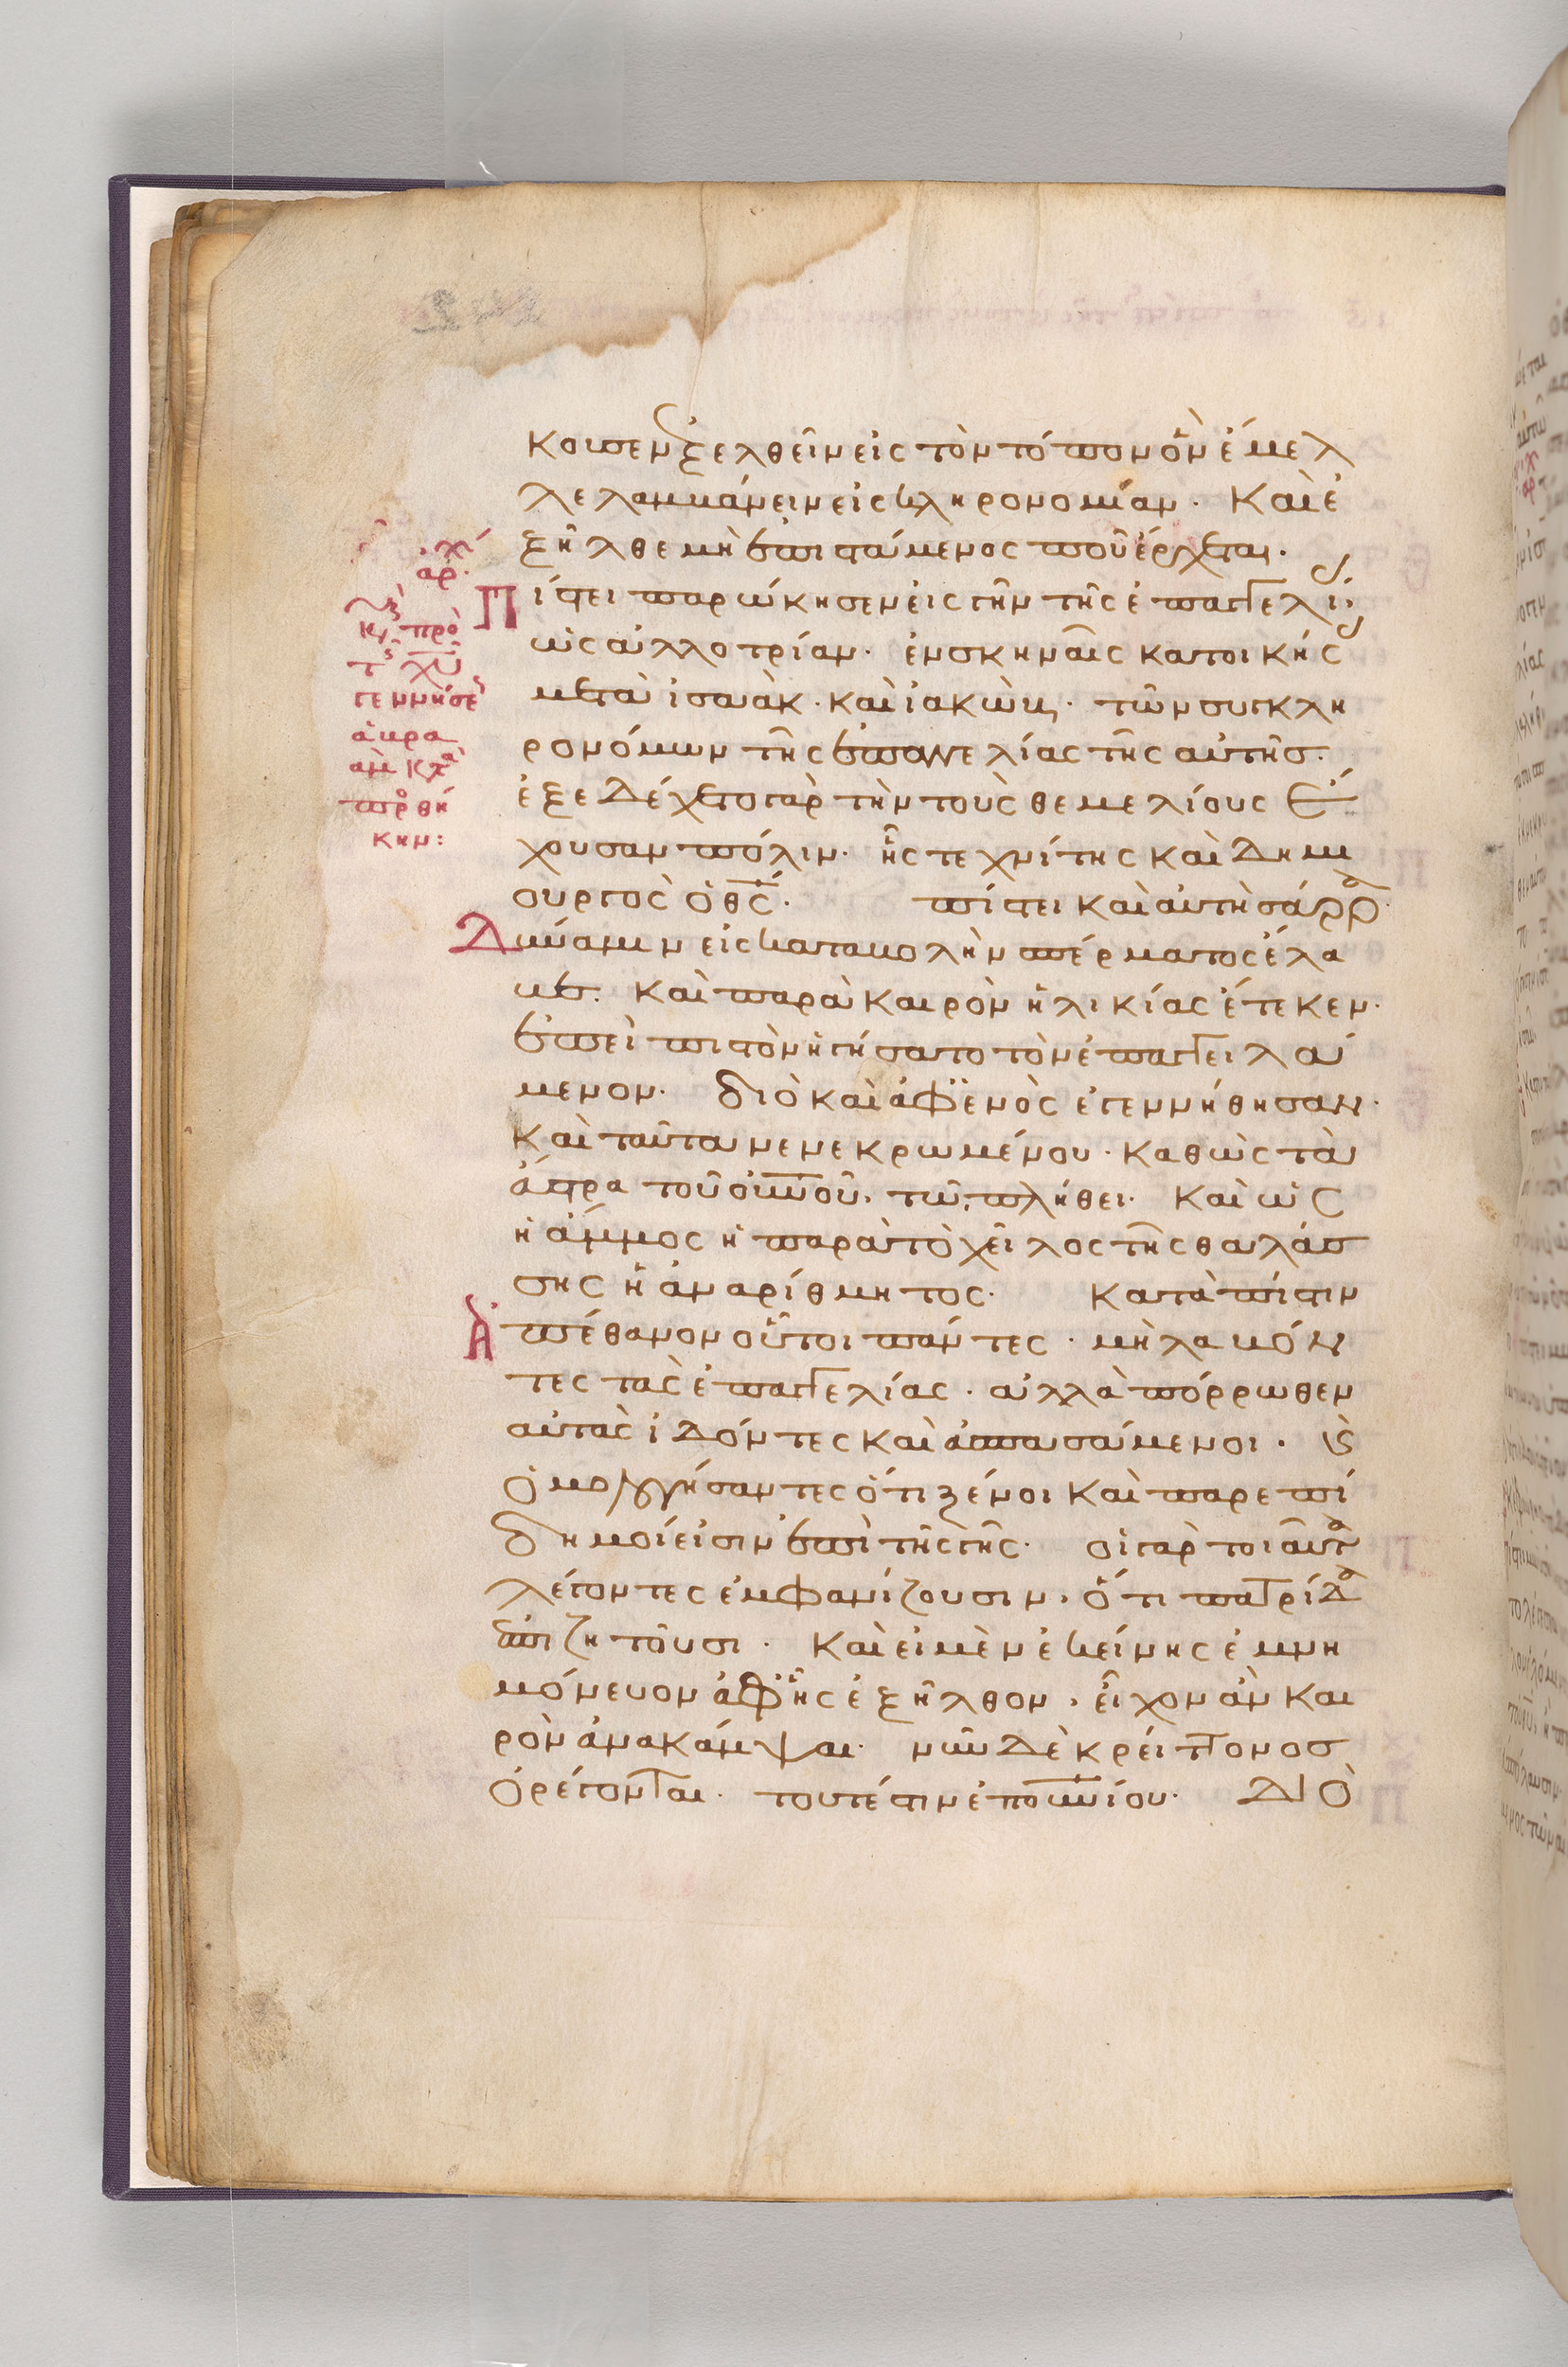 χ
αρ
κυ πρὸ
τ χυ
γεννήσε
ἀβρα
ὰμ κλ
προθή
κην:
κουσεν ἐξελθεῖν εἰς τὸν τόπον ὃν ἔμελ
λε λαμβάνειν εἰς κληρονομίαν. Καὶ ἐ
ξῆλθε μὴ ἐπιστάμενος ποῦ ἔρχεται.
Πίστει παρώκησεν εἰς γῆν τῆς ἐπαγγελί
ὡς ἀλλοτρίαν. ἐν σκηναῖς κατοικής
μετὰ ἰσαὰκ. καὶ ἰακὼβ. τῶν συγκλη
ρονόμων τῆς ἐπαγγελίας τῆς αὐτῆς.
ἐξεδέχετο γὰρ τὴν τοὺς θεμελίους ἔ
χουσαν πόλιν. ἧς τεχνίτης καὶ δημι
ουργὸς ὁ θς. πίστει καὶ αὐτὴ σάρρα
Δύναμιν εἰς καταβολὴν σπέρματος ἔλα
βε. καὶ παρὰ καιρὸν ἡλικίας ἔτεκεν.
ἐπεὶ πιστὸν ἡγήσατο τὸν ἐπαγγειλά
μενον. διὸ καὶ ἀφ ἑνὸς ἐγεννήθησαν.
καὶ ταῦτα νενεκρωμένου. καθὼς τὰ
ἄστρα τοῦ οὐνοῦ. τῶ πλήθει. καὶ ὡς
ἡ ἄμμος ἡ παρὰ τὸ χεῖλος τῆς θαλάσ
σης ἡ ἀναρίθμητος. Κατὰ πίστιν
Ἀπέθανον οὗτοι πάντες. μὴ λαβόν
τες τὰς ἐπαγγελίας. ἀλλὰ πόρρωθεν
αὐτὰς ἰδόντες καὶ ἀσπασάμενοι. ϗ
ὁμολογήσαντες ὅτι ξένοι καὶ παρεπί
δημοί εἰσιν ἐπὶ τῆς γῆς. οἱ γὰρ τοιαῦτα
λέγοντες ἐμφανίζουσιν. ὅτι πατρίδα
ἐπιζητοῦσι. Καὶ εἰ μὲν ἐκείνης ἐμνη
μόνευον ἀφ ἧς ἐξῆλθον. εἶχον ἂν και
ρὸν ἀνακάμψαι. νῦν δὲ κρείττονος
ὀρέγονται. τουτέστιν ἐπουνίου. ΔΙΟ